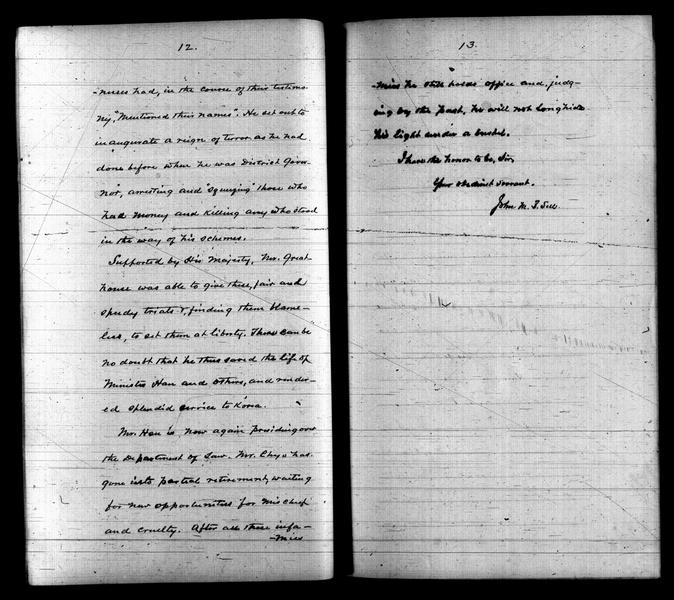 12.
-nesses had, in the course of their testimo-
ny, "Mentioned their names". He set out to
inaugurate a reign of terror as he had
done before when he was District Gover-
nor, arresting and "squeezing" those who
had money and killing any who stood
in the way of his schemes.
Supported by His Majesty, Mr. Great
house was able to give these, fair and
speedy trials &, finding them blame-
less, to set them at liberty. There can be
no doubt that he thus saved the life of
Minister Han and others, and render-
ed splendid service to Korea.
Mr. Han is now again presiding over
the Department of Law. Mr. Chyo has
gone into partial retirement, waiting
for new opportunities for mischief
and cruelty. After all these infa-
-mies
13.
-mies he still holds office and, judg-
ing by the past, he will not long hide
his light under a bushel.
I have the honor to be, Sir,
Your obedient servant.
John M. B. Sill